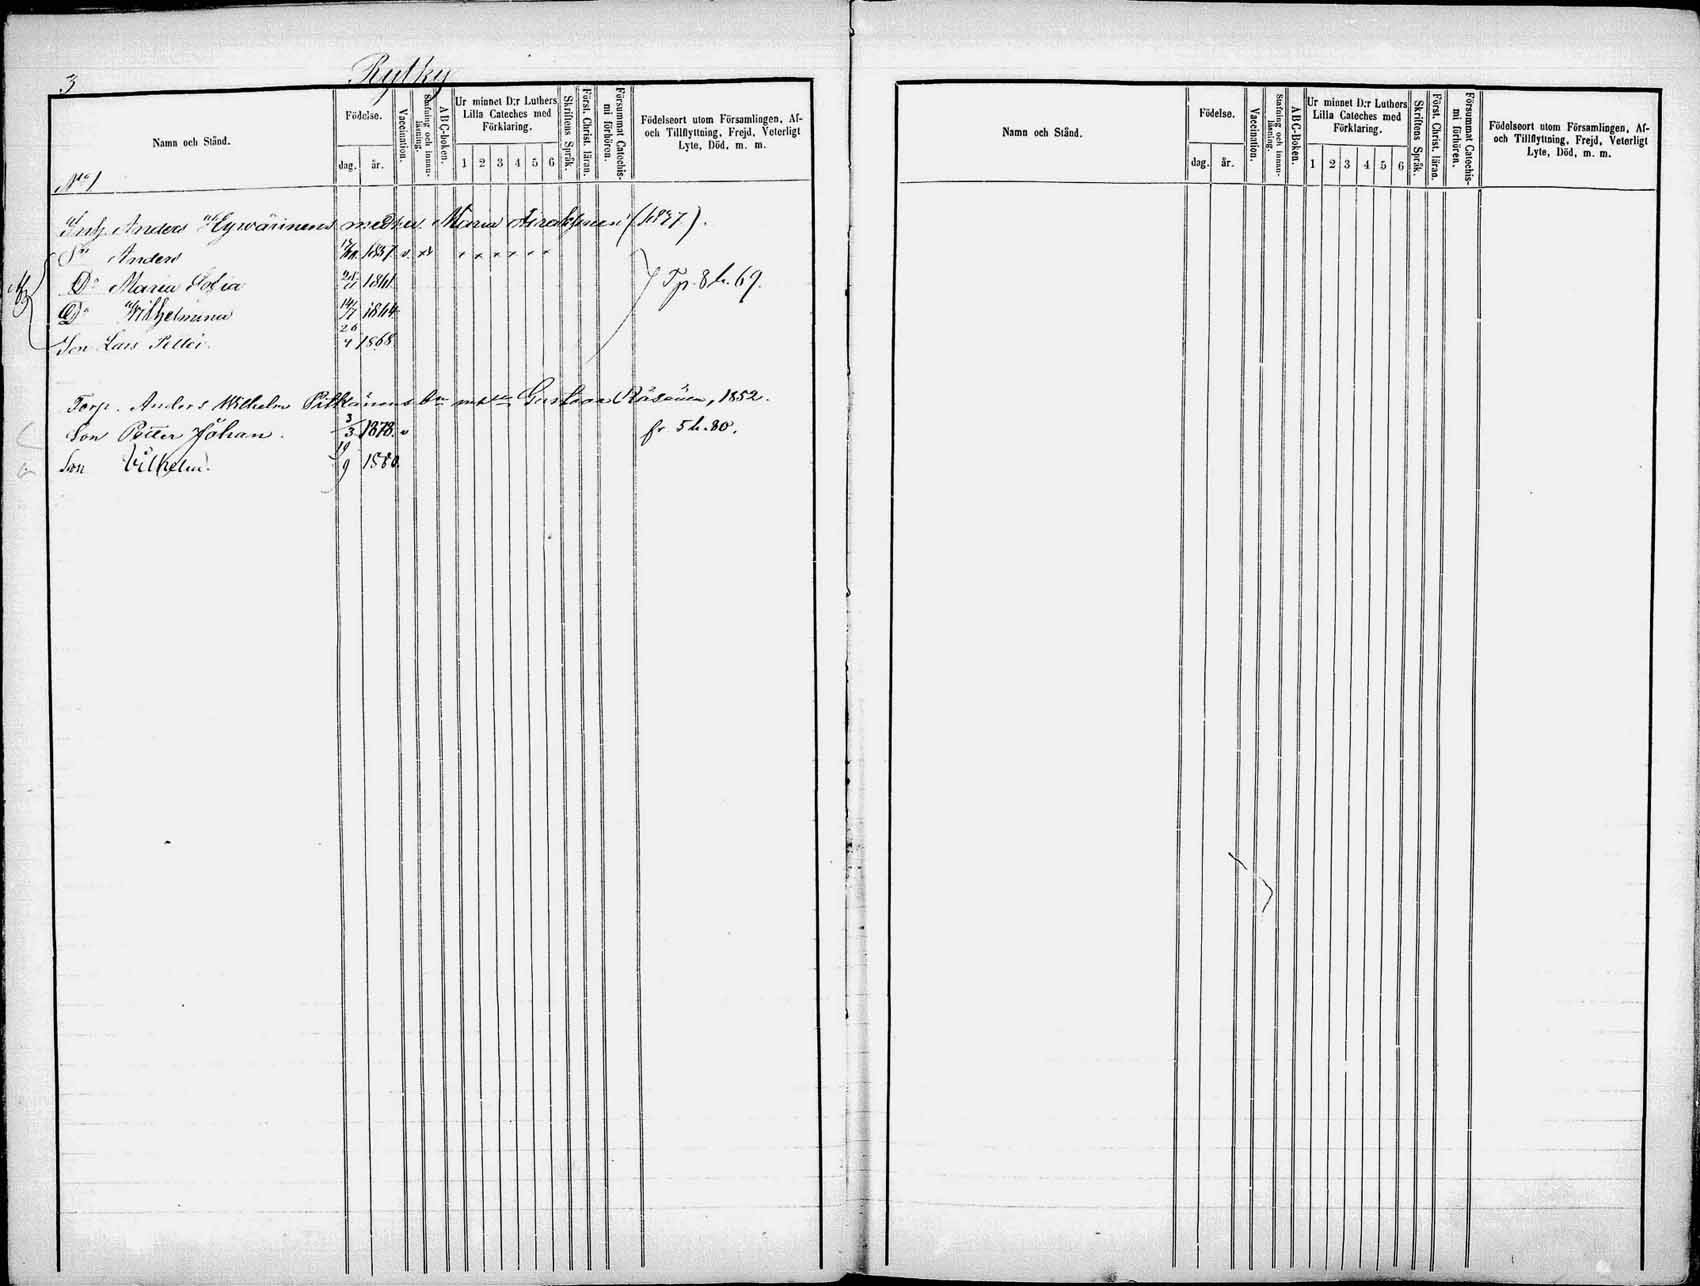 3
Rytky
Namn och Stånd.
Födelse.
dag. år.
Vaccination.
Stafning och innanläsning.
ABC-boken.
Ur minnet D:r Luthers Lilla Cateches med Förklaring.
1 2 3 4 5 6
Skriftens Språk.
Först. Christ. läran.
Försummat Catechismi förhören.
Födelseort utom Församlingen, Af- och Tillflyttning, Frejd, Veterligt Lyte, Död, m. m.
N:o 1
Inh. Anders Hyvärinens med hu. Maria (1837).
Sn Anders 1857. v. x x x x x x x
Dr Maria Sofia 1861 Tp. 8 h. 69.
Dr Wilhelmina 14/7 1864
Son Lars Petter. 26/4 1868
Torp. Anders Wilhelm Gustava Räsänen, 1852.
Son Petter Johan. 3/3 1878. v fr 5 h. 80.
Son Vilhelm. 19/9 1880.
Namn och Stånd.
Födelse.
dag. år.
Vaccination.
Stafning och innanläsning.
ABC-boken.
Ur minnet D:r Luthers Lilla Cateches med Förklaring.
1 2 3 4 5 6
Skriftens Språk.
Först. Christ. läran.
Försummat Catechismi förhören.
Födelseort utom Församlingen, Af- och Tillflyttning, Frejd, Veterligt Lyte, Död, m. m.